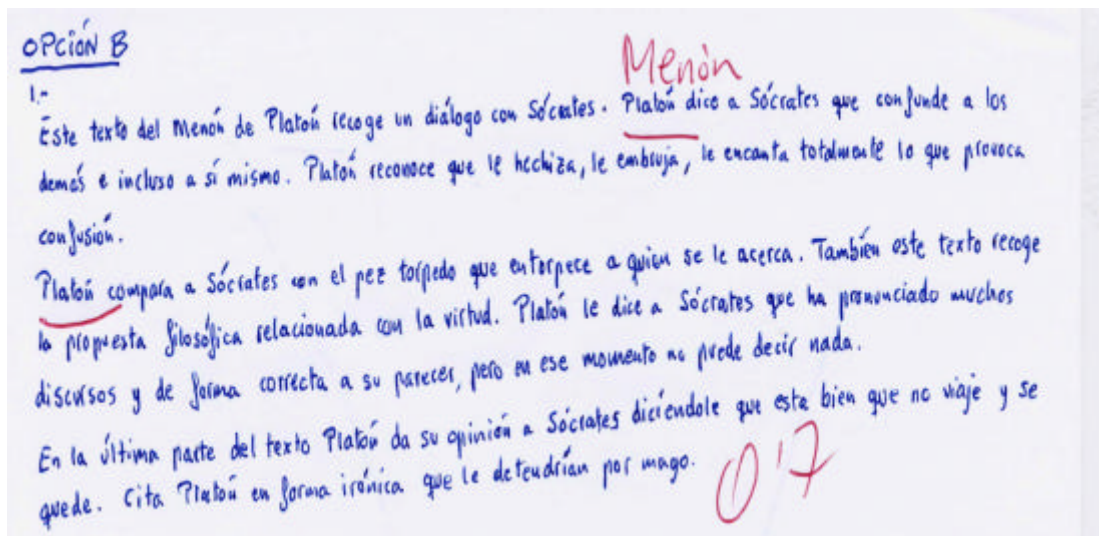 OPCIÓN B
Menón
1.-
Este texto del Menón de Platón recoge un diálogo con Sócrates. Platón dice a Sócrates que confunde a los
demás e incluso a sí mismo. Platón reconoce que le hechiza, le embruja, le encanta totalmente lo que provoca
confusión.
Platón compara a Sócrates con el pez torpedo que entorpece a quien se le acerca. También este texto recoge
la propuesta filosófica relacionada con la virtud. Platón le dice a Sócrates que ha pronunciado muchos
discursos y de forma correcta a su parecer, pero en ese momento no puede decir nada.
En la última parte del texto Platón da su opinión a Sócrates diciéndole que esta bien que no viaje y se
quede. Cita Platón en forma irónica que le detendrían por mago.
0'7